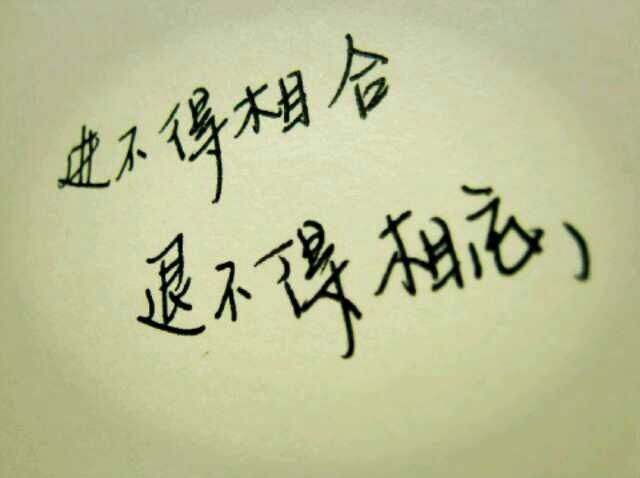 进不得相合
退不得相忘，